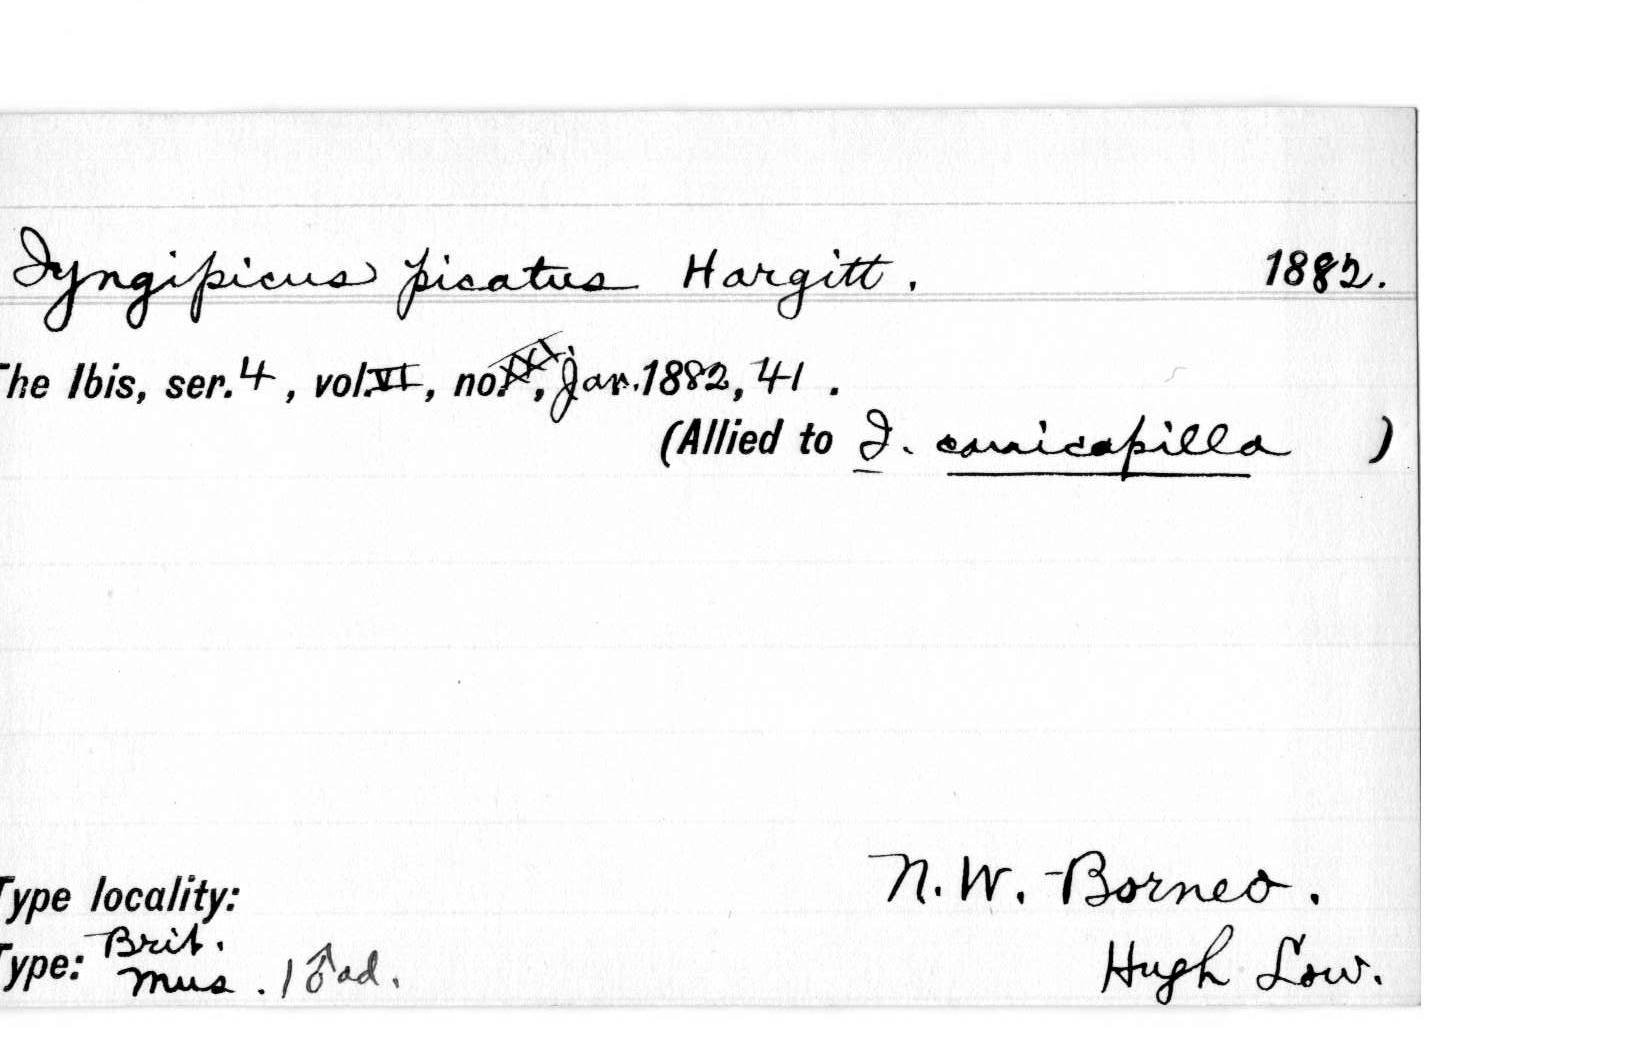 Iyngipicus picatus Hargitt. 1882.
The Ibis, ser. 4, vol. VI, no. XXI, Jan. 1882, 41.
(Allied to I. canicapilla )
Type locality: N. W. Borneo.
Type: Brit. Mus. 1 ♂ ad. Hugh Low.